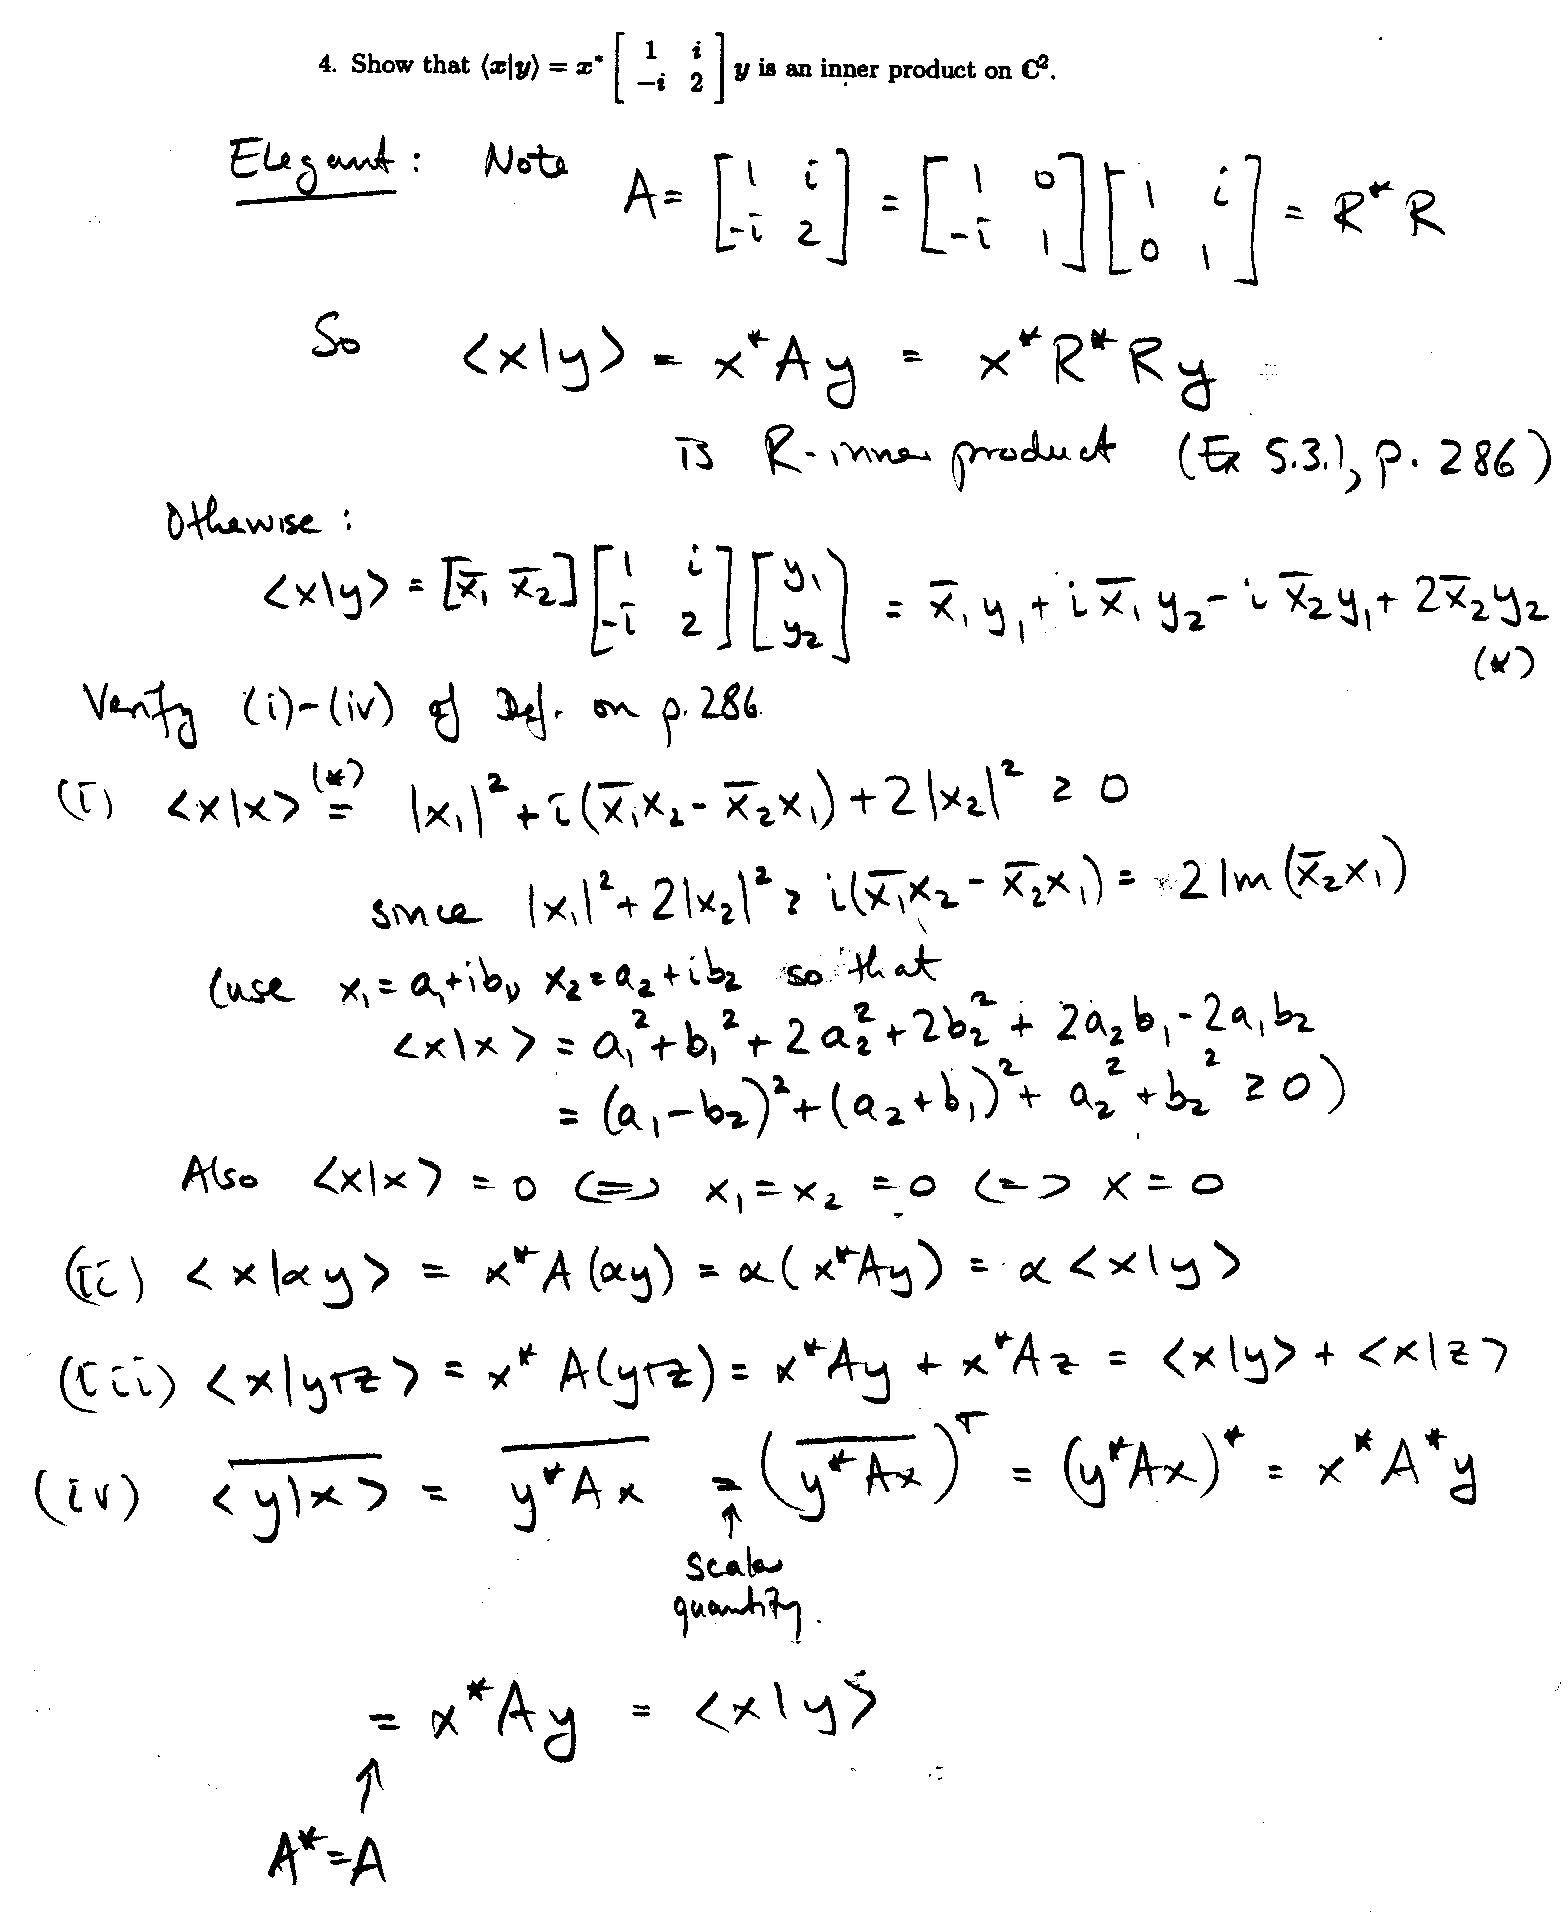 4. Show that ⟨x|y⟩ = x* [ 1 i ; −i 2 ] y is an inner product on ℂ².
Elegant: Note A = [ 1 i ; -i 2 ] = [ 1 0 ; -i 1 ] [ 1 i ; 0 1 ] = R*R
So <x|y> = x*Ay = x*R*Ry
is R-inner product (Ex 5.3.1, p. 286)
Otherwise:
<x|y> = [x̄₁ x̄₂] [ 1 i ; -i 2 ] [ y₁ ; y₂ ] = x̄₁y₁ + i x̄₁y₂ - i x̄₂y₁ + 2x̄₂y₂
(*)
Verify (i)-(iv) of Def. on p. 286.
(i) <x|x> (*)= |x₁|² + i(x̄₁x₂ - x̄₂x₁) + 2|x₂|² ≥ 0
since |x₁|² + 2|x₂|² ≥ i(x̄₁x₂ - x̄₂x₁) = 2 Im(x̄₂x₁)
(use x₁ = a₁+ib₁, x₂ = a₂+ib₂ so that
<x|x> = a₁² + b₁² + 2a₂² + 2b₂² + 2a₂b₁ - 2a₁b₂
= (a₁-b₂)² + (a₂+b₁)² + a₂² + b₂² ≥ 0)
Also <x|x> = 0 <=> x₁ = x₂ = 0 <=> x = 0
(ii) <x|αy> = x*A(αy) = α(x*Ay) = α<x|y>
(iii) <x|y+z> = x*A(y+z) = x*Ay + x*Az = <x|y> + <x|z>
(iv) \overline{<y|x>} = \overline{y*Ax} = (\overline{y*Ax})ᵀ = (y*Ax)* = x*A*y
↑
scalar
quantity.
= x*Ay = <x|y>
↑
A*=A